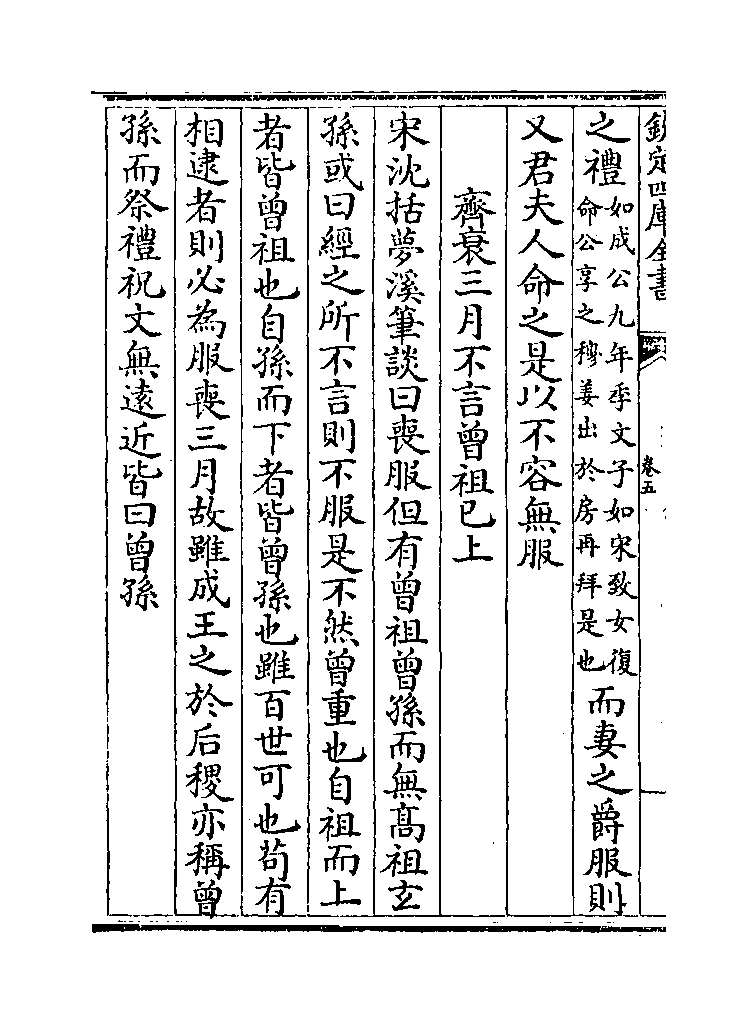 欽定四庫全書
卷五
之禮如成公九年季文子如宋致女復命公享之穆姜出於房再拜是也而妻之爵服則
又君夫人命之是以不容無服
齊衰三月不言曾祖已上
宋沈括夢溪筆談曰喪服但有曾祖曾孫而無髙祖玄
孫或曰經之所不言則不服是不然曾重也自祖而上
者皆曾祖也自孫而下者皆曾孫也雖百世可也茍有
相逮者則必為服喪三月故雖成王之於后稷亦稱曾
孫而祭禮祝文無遠近皆曰曾孫